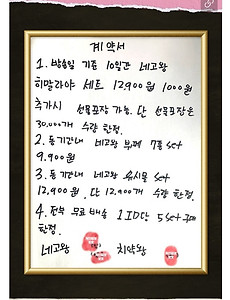 계약서
1. 방송일 기준 10일간 네고왕
히말라야 세트 12,900원 1000원
추가시 선물포장 가능. 단 선물포장은
30,000개 수량 한정.
2. 동기간내 네고왕 부페 7종 set
9,900원
3. 동기간내 네고왕 set
12,900원. 단 12,900개 수량 한정.
4. 전부 무료배송 1ID당 5set 구매
한정.
네고왕 치약왕